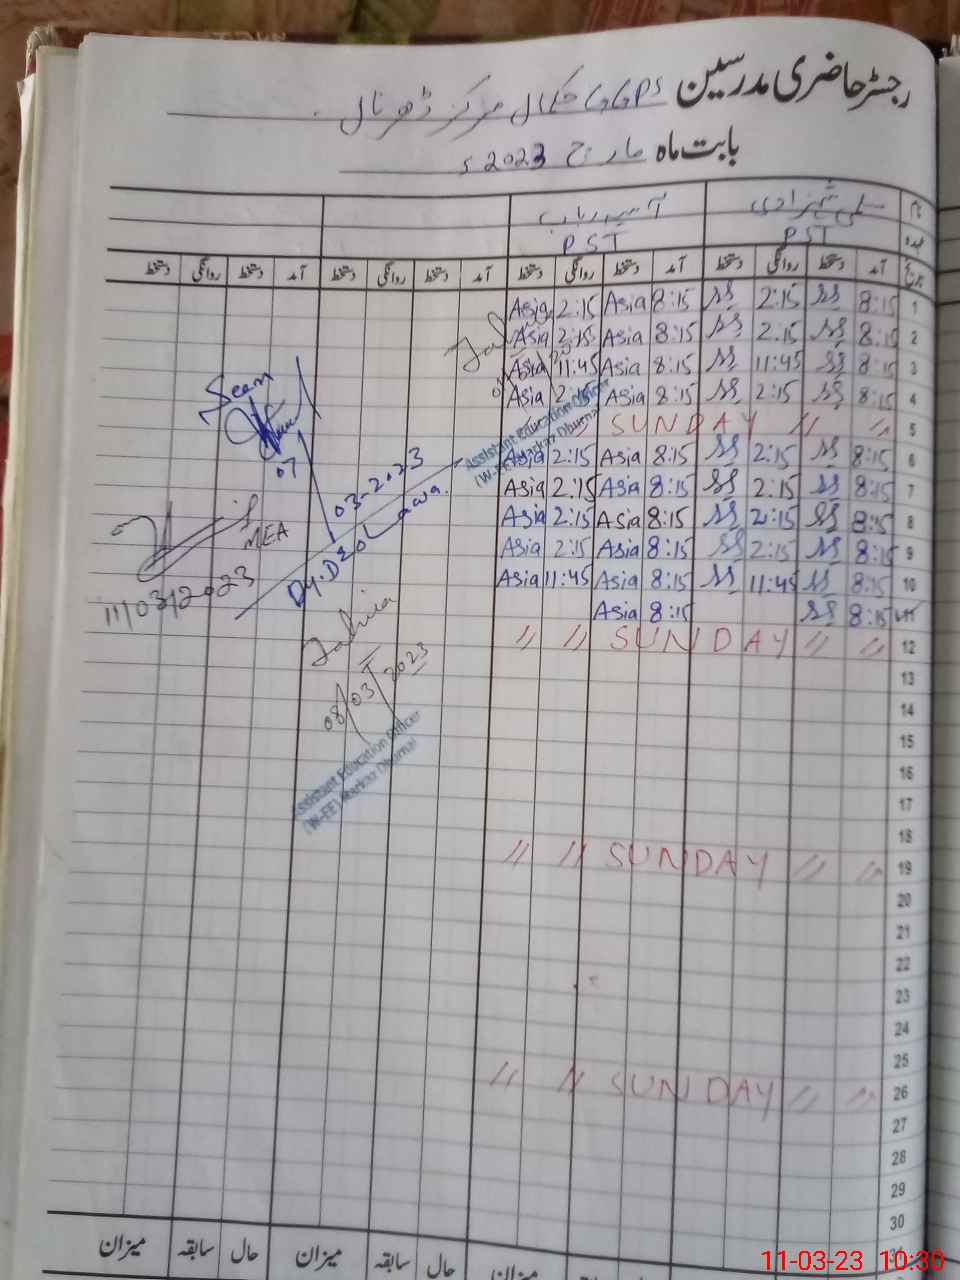 رجسٹر حاضری مدرسین GGPS حکمال مرکز ڈھرنال
بابت ماہ مارچ 2023ء
نام سلمیٰ شہزادی آسیہ رباب
عہدہ PST PST
تاریخ آمد دستخط روانگی دستخط آمد دستخط روانگی دستخط آمد دستخط روانگی دستخط آمد دستخط روانگی دستخط
1 8:15 SS 2:15 SS 8:15 Asia 2:15 Asia
2 8:15 SS 2:15 SS 8:15 Asia 2:15 Asia
3 8:15 SS 11:45 SS 8:15 Asia 11:45 Asia
4 8:15 SS 2:15 SS 8:15 Asia 2:15 Asia
5 〃 〃 SUNDAY 〃 〃
6 8:15 SS 2:15 SS 8:15 Asia 2:15 Asia
7 8:15 SS 2:15 SS 8:15 Asia 2:15 Asia
8 8:15 SS 2:15 SS 8:15 Asia 2:15 Asia
9 8:15 SS 2:15 SS 8:15 Asia 2:15 Asia
10 8:15 SS 11:45 SS 8:15 Asia 11:45 Asia
8:15 SS 8:15 Asia
12 〃 〃 SUNDAY 〃 〃
13
14
15
16
17
18
19 〃 〃 SUNDAY 〃 〃
20
21
22
23
24
25
26 〃 〃 SUNDAY 〃 〃
27
28
29
30
31
Assistant Education Officer
(W-EE) Markaz Dhurnal
Seen
07-03-2023
Dy.DEO Lawa.
MEA
11/03/2023
08/03/2023
Assistant Education Officer
(W-EE) Markaz Dhurnal
میزان حال سابقہ میزان حال سابقہ میزان
11-03-23 10:30